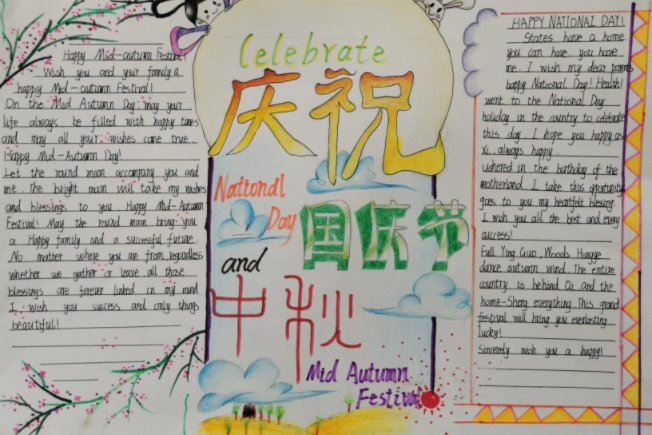 Happy Mid-autumn Festival!
Wish you and your family a
happy Mid-autumn Festival!
On the Mid Autumn Day may your
life always be filled with happy times
and may all your wishes come true.
Happy Mid-Autumn Day!
Let the round moon accompany you and
me the bright moon will take my wishes
and blessings to you Happy Mid-Autumn
Festival! May the round moon bring you
a Happy family and a successful future.
No matter where you are from regardless
whether we gather or leave all those
blessings are forever linked in my mind
I wish you success and only things
beautiful!
Celebrate
庆祝
National
Day
国庆节
and
中秋
Mid Autumn
Festival
HAPPY NATIONAL DAY!
States have a home
you can have, you have
me. I wish my dear parents
happy National Day! Health!
went to the National Day
holiday in the country to celebrate
this day. I hope you happy as
xi. always happy.
ushered in the birthday of the
motherland. I take this opportunity
goes to you my heartfelt blessing.
I wish you all the best and every
success!
Full Ying Guo, Woods Hongye
dance autumn wind. The entire
country is behind Qi and the
home-Sheng everything. This grand
festival will bring you everlasting
lucky!
Sincerely wish you a happy!